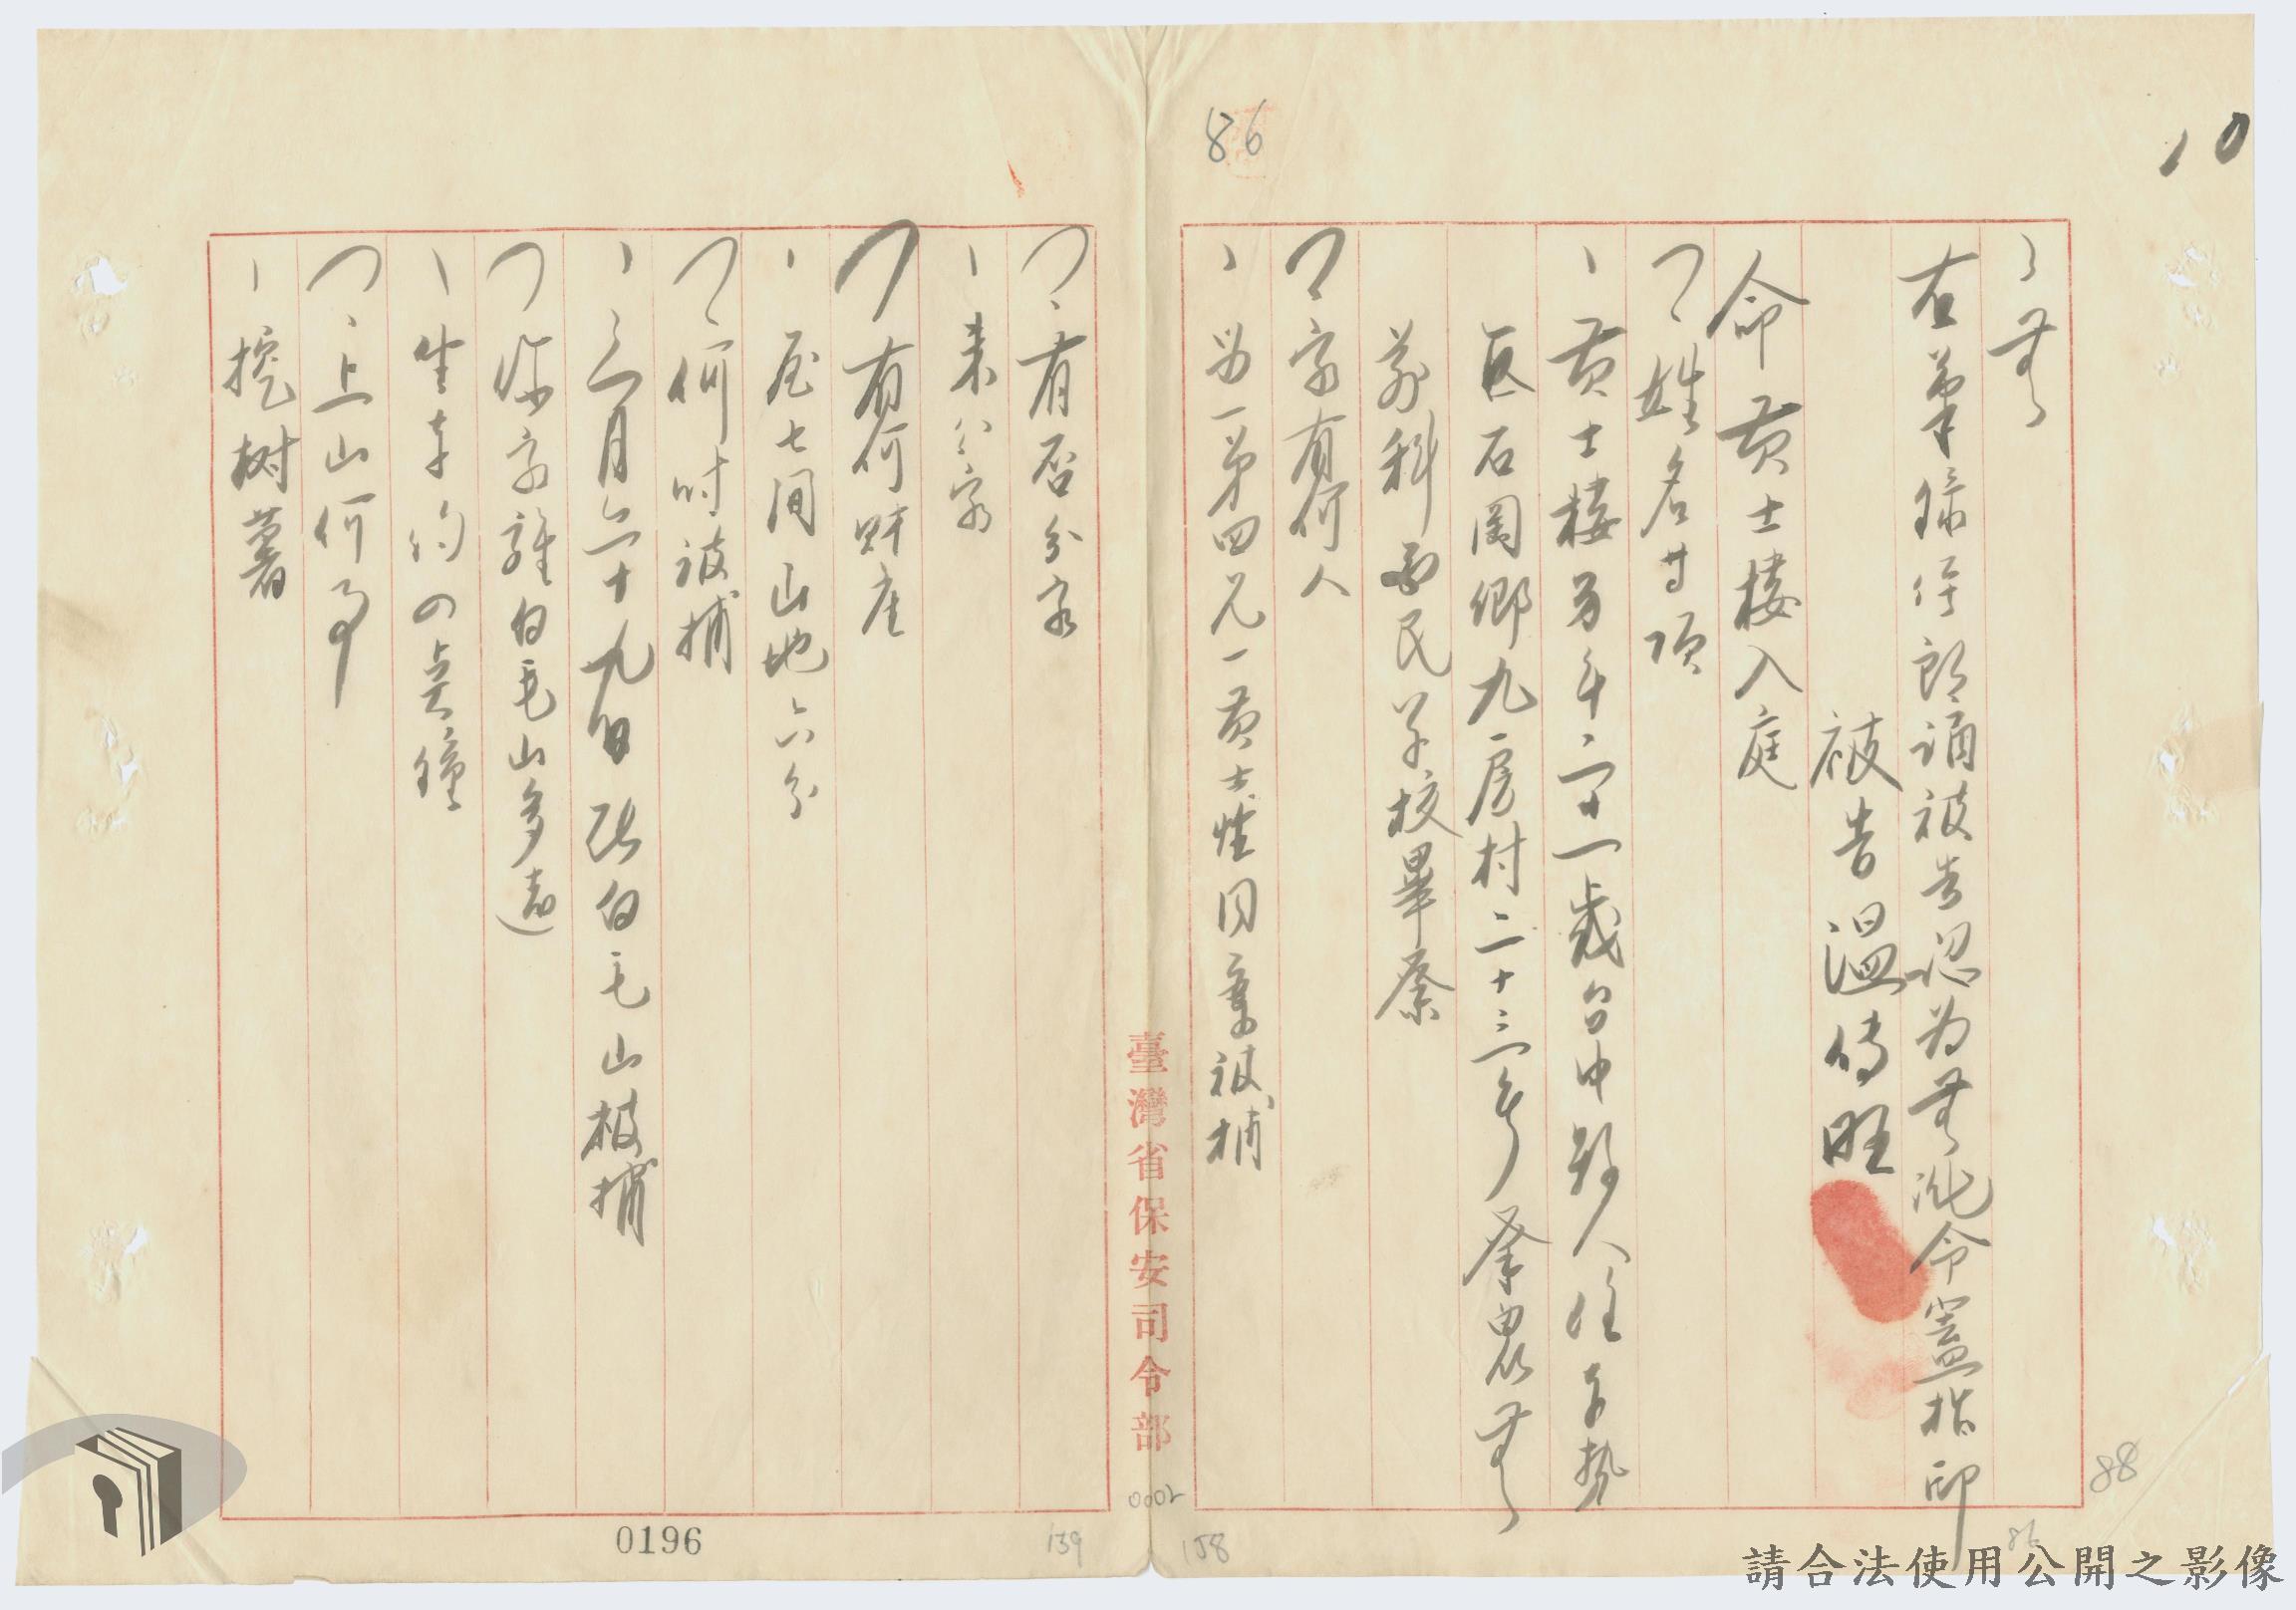 10
86
、無
右筆錄經朗誦被告認為無訛令蓋指印
被告溫傳旺
命黃士樓入庭
問、姓名等項
、黃士樓男年二十一歲台中縣人住東勢
區石岡鄉九房村二十三號業農無
前科 國民學校畢業
問、家有何人
、父一弟四兄一黃士 同案被捕
問、有否分家
、未分家
問 有何財產
、屋七間山地六分
問、何時被捕
、三月二十九日 於白毛山被捕
問 你家離白毛山多遠
、坐車約四點鐘
問、上山何事
、挖樹薯
臺灣省保安司令部
0002
88
86
158
139
0196
請合法使用公開之影像